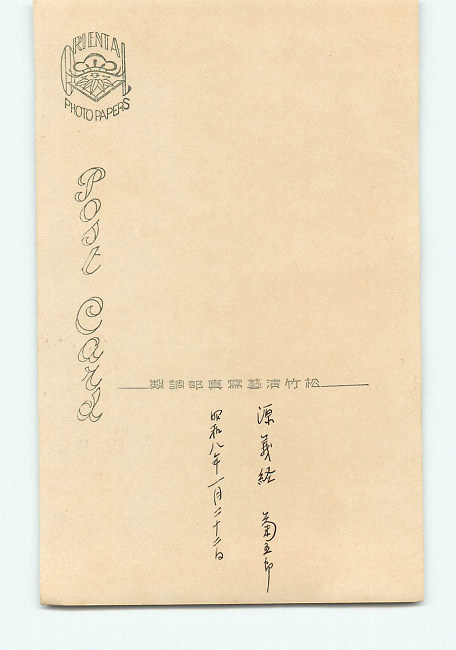 ORIENTAL
PHOTO PAPERS
Post Card
松竹演藝寫眞部調製
源義経 菊五郎
昭和八年一月二十二日